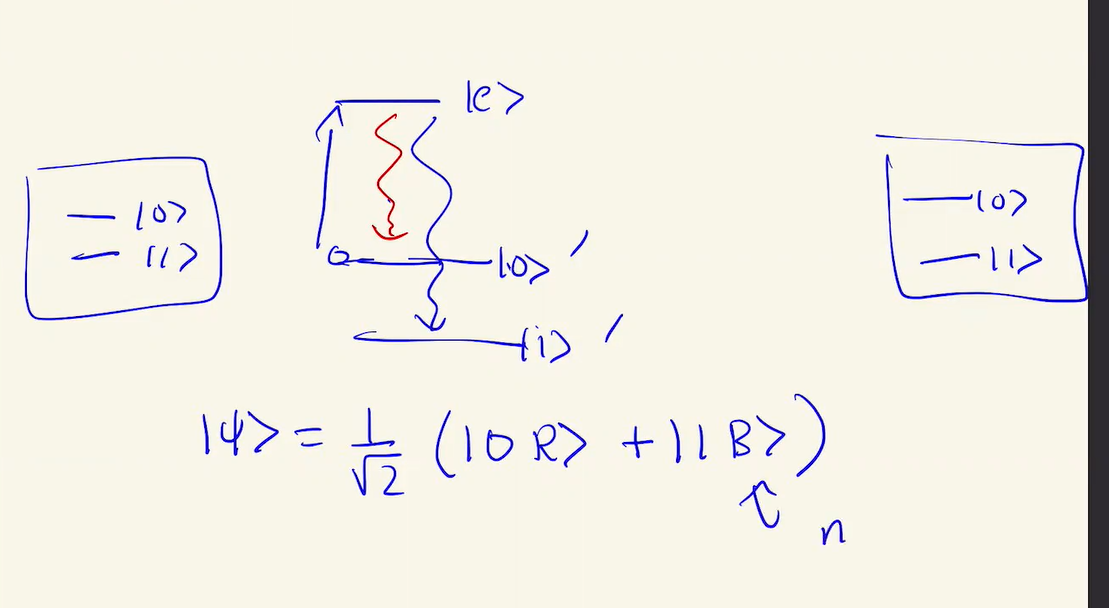 |e>
|0>
|1>
|0> ′
|1> ′
|0>
|1>
|ψ> = 1/√2 (|0 R> + |1 B>)
n